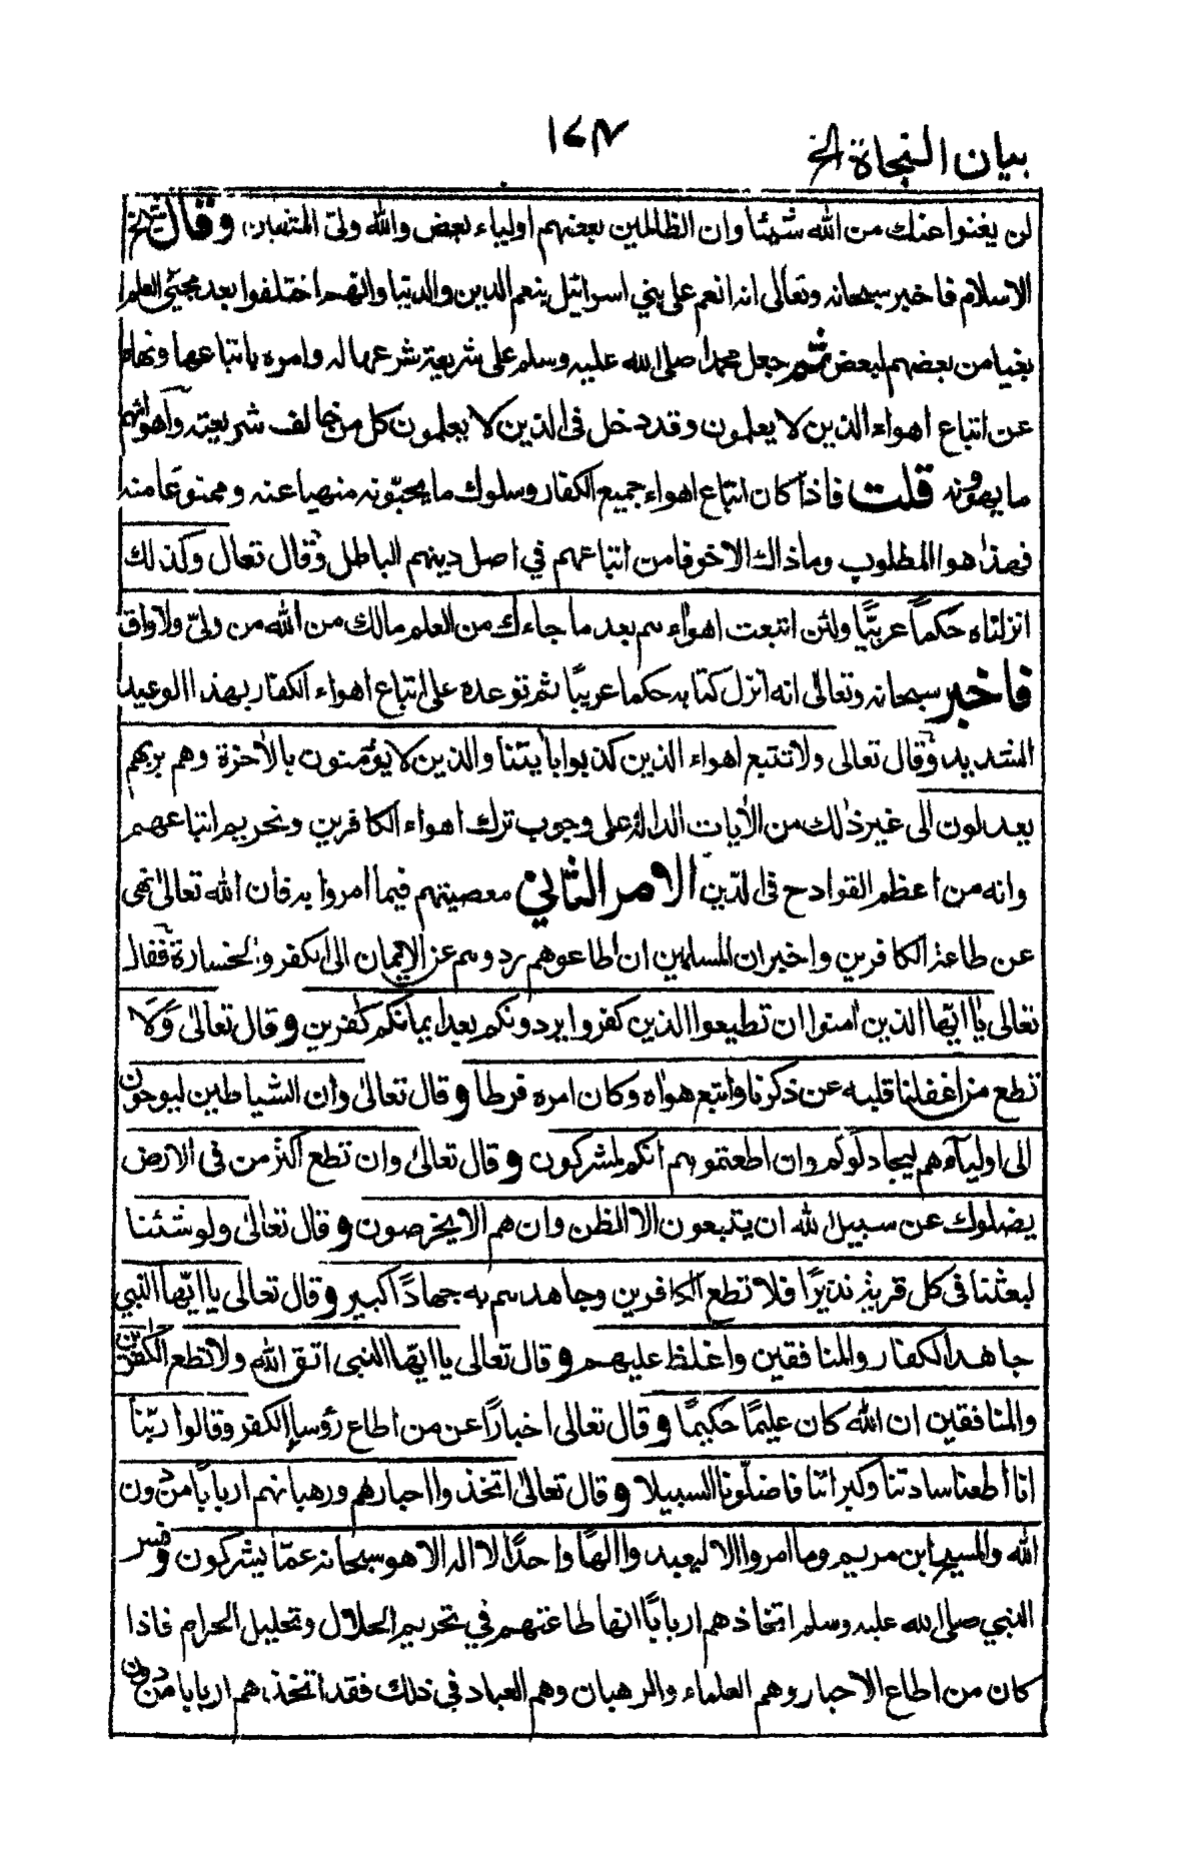 بيان النجاة الخ
لن يغنوا عنك من الله شيئا وان الظالمين بعضهم اولياء بعض والله ولي المتقين وقال شيخ
الاسلام فاخبر سبحانه وتعالى انه انعم على بني اسرائيل بنعم الدين والدنيا وانهم اختلفوا بعد مجيئ العلم
بغيا من بعضهم لبعض ثم جعل محمدا صلى الله عليه وسلم على شريعة شرعها له وامره باتباعها ونهاه
عن اتباع اهواء الذين لا يعلمون وقد دخل فى الذين لا يعلمون كل من خالف شريعته واهوائهم
ما يهوونه قلت فاذا كان اتباع اهواء جميع الكفار وسلوك ما يحبونه منهيا عنه وممنوعا منه
فهذا هو المطلوب وما ذاك الا خوفا من اتباعهم في اصل دينهم الباطل وقال تعالى وكذلك
انزلناه حكما عربيًّا ولئن اتبعت اهواءهم بعد ما جاءك من العلم مالك من الله من ولي ولا واق
فاخبر سبحانه وتعالى انه انزل كتابه حكما عربيًا ثم توعده على اتباع اهواء الكفار بهذا الوعيد
الشديد وقال تعالى ولا تتبع اهواء الذين كذبوا بأيتنا والذين لا يؤمنون بالأخرة وهم بربهم
يعدلون الى غير ذلك من الأيات الدالة على وجوب ترك اهواء الكافرين وتحريم اتباعهم
وانه من اعظم القوادح فى الدين الامر الثاني معصيتهم فيما امروا به فان الله تعالى نهى
عن طاعة الكافرين واخبر ان المسلمين ان اطاعوهم ردوهم عن الإيمان الى الكفر والخسارة فقال
تعالى يا ايها الذين امنوا ان تطيعوا الذين كفروا يردونكم بعد ايمانكم كفرين وقال تعالى وَلَا
تطع من اغفلنا قلبه عن ذكرنا واتبع هواه وكان امره فرطا وقال تعالى وان الشياطين ليوحون
الى اوليآءهم ليجادلوكم وان اطعتموهم انكم لمشركون وقال تعالى وان تطع اكثر من فى الارض
يضلوك عن سبيل الله ان يتبعون الا الظن وان هم الا يخرصون وقال تعالى ولو شئنا
لبعثنا فى كل قرية نذيرًا فلا تطع الكافرين وجاهدهم به جهادًا كبير وقال تعالى يا ايها النبي
جاهد الكفار والمنافقين واغلظ عليهم وقال تعالى يا ايها النبى اتق الله ولا تطع الكفرين
والمنافقين ان الله كان عليمًا حكيمًا وقال تعالى اخبارًا عن من اطاع رؤسا الكفر وقالوا ربنا
انا اطعنا سادتنا وكبرائنا فاضلونا السبيلا وقال تعالى اتخذوا احبارهم ورهبانهم اربابًا من دون
الله والمسيح ابن مريم وما امروا الا ليعبدوا الهًا واحدًا لا اله الا هو سبحانه عمّا يشركون وفسر
النبي صلى الله عليه وسلم اتخاذهم اربابًا انها طاعتهم في تحريم الحلال وتحليل الحرام فاذا
كان من اطاع الاحبار وهم العلماء والرهبان وهم العباد في ذلك فقد اتخذهم اربابا من دون